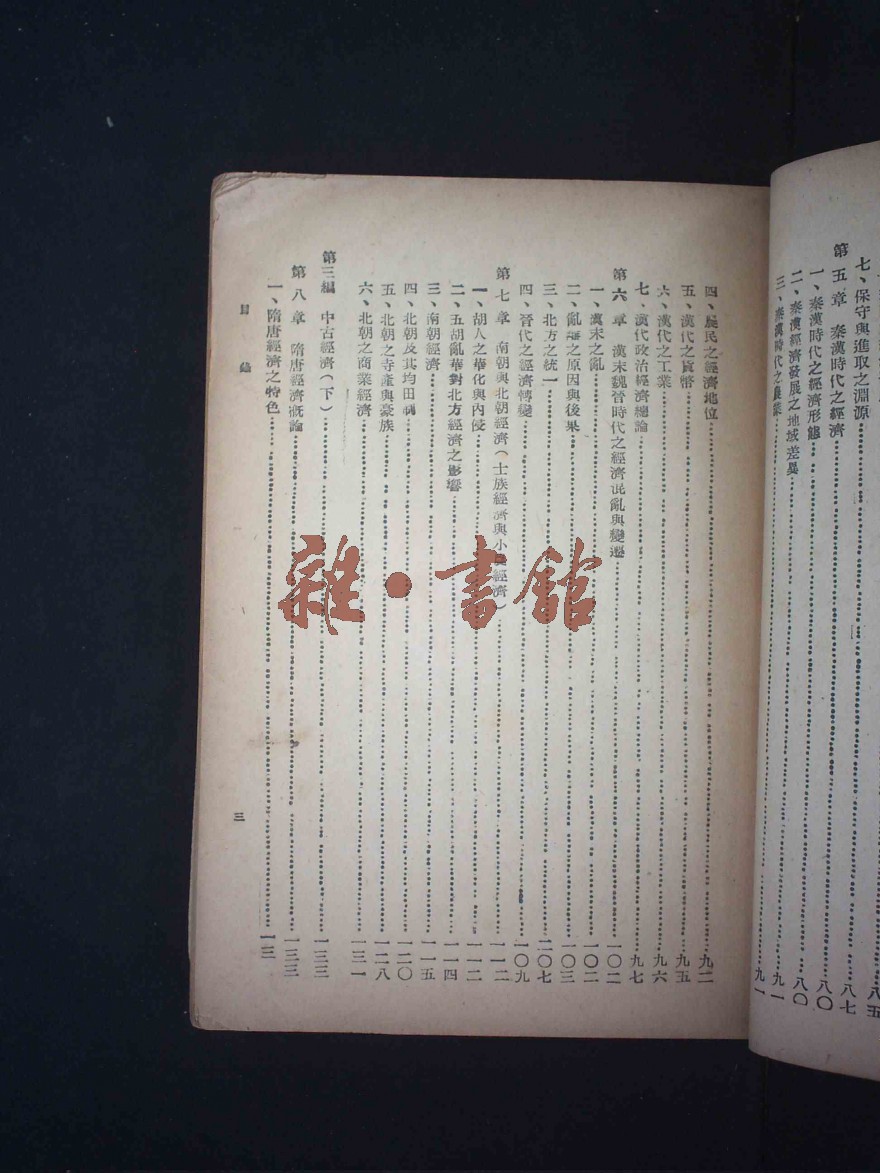 七、保守與進取之淵源 八五
第五章 秦漢時代之經濟 八七
一、秦漢時代之經濟形態 八〇
二、秦漢經濟發展之地域差異 八〇
三、秦漢時代之農業 九一
四、農民之經濟地位 九二
五、漢代之貨幣 九五
六、漢代之工業 九六
七、漢代政治經濟總論 九七
第六章 漢末魏晉時代之經濟混亂與變遷 一〇二
一、漢末之亂 一〇二
二、亂離之原因與後果 一〇三
三、北方之統一 二〇七
四、晉代之經濟轉變 一〇九
第七章 南朝與北朝經濟（士族經濟與小農經濟） 一一二
一、胡人之華化與內侵 一一二
二、五胡亂華對北方經濟之影響 一一四
三、南朝經濟 一一五
四、北朝及其均田制 一二〇
五、北朝之寺產與豪族 一二八
六、北朝之商業經濟 一三一
第三編 中古經濟（下） 一三三
第八章 隋唐經濟概論 一三三
一、隋唐經濟之特色
目錄
三
雜·書館